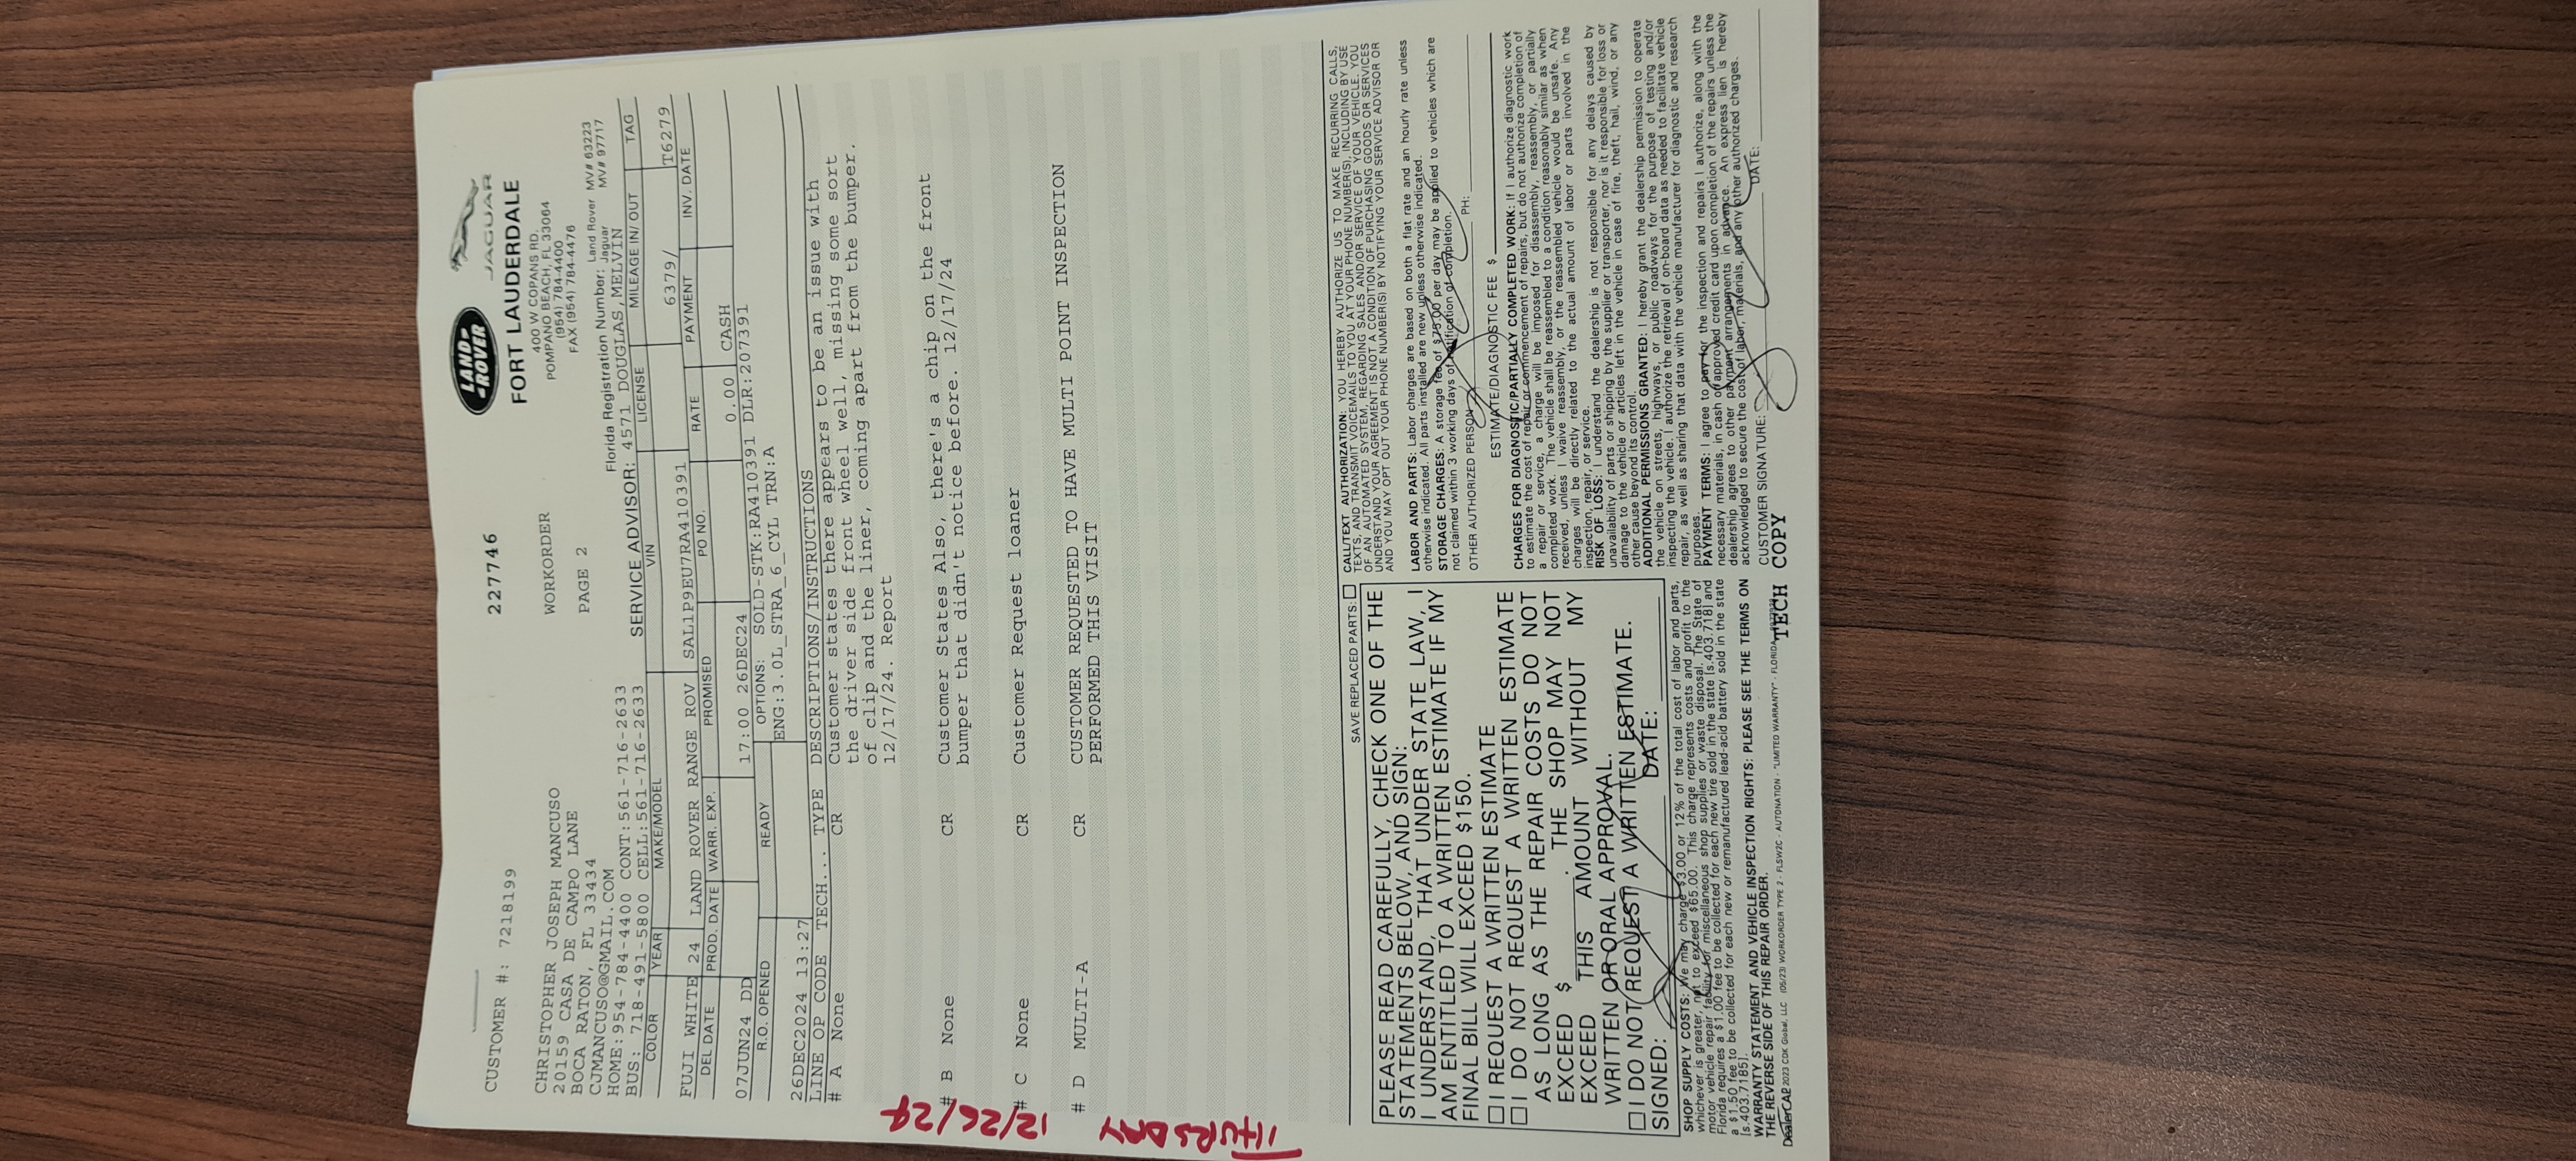 CUSTOMER #: 7218199
227746
LAND-
ROVER
JAGUAR
FORT LAUDERDALE
400 W COPANS RD.
POMPANO BEACH, FL 33064
(954) 784-4400
FAX (954) 784-4476
WORKORDER
PAGE 2
CHRISTOPHER JOSEPH MANCUSO
20159 CASA DE CAMPO LANE
BOCA RATON, FL 33434
CJMANCUSO@GMAIL.COM
HOME:954-784-4400 CONT:561-716-2633
BUS: 718-491-5800 CELL:561-716-2633
Florida Registration Number: Land Rover MV# 63223
Jaguar MV# 97717
SERVICE ADVISOR: 4571 DOUGLAS,MELVIN
COLOR YEAR MAKE/MODEL VIN LICENSE MILEAGE IN/ OUT TAG
FUJI WHITE 24 LAND ROVER RANGE ROV SAL1P9EU7RA410391 6379/ T6279
DEL DATE PROD. DATE WARR. EXP. PROMISED PO NO. RATE PAYMENT INV. DATE
07JUN24 DD 17:00 26DEC24 0.00 CASH
R.O. OPENED READY OPTIONS: SOLD-STK:RA410391 DLR:207391
ENG:3.0L_STRA_6_CYL TRN:A
26DEC2024 13:27
LINE OP CODE TECH... TYPE DESCRIPTIONS/INSTRUCTIONS
# A None CR Customer states there appears to be an issue with
the driver side front wheel well, missing some sort
of clip and the liner, coming apart from the bumper.
12/17/24. Report
# B None CR Customer States Also, there's a chip on the front
bumper that didn't notice before. 12/17/24
# C None CR Customer Request loaner
# D MULTI-A CR CUSTOMER REQUESTED TO HAVE MULTI POINT INSPECTION
PERFORMED THIS VISIT
12/26/24
THURSDAY
SAVE REPLACED PARTS: □
PLEASE READ CAREFULLY, CHECK ONE OF THE
STATEMENTS BELOW, AND SIGN:
I UNDERSTAND, THAT UNDER STATE LAW, I
AM ENTITLED TO A WRITTEN ESTIMATE IF MY
FINAL BILL WILL EXCEED $150.
□ I REQUEST A WRITTEN ESTIMATE
□ I DO NOT REQUEST A WRITTEN ESTIMATE
AS LONG AS THE REPAIR COSTS DO NOT
EXCEED $ . THE SHOP MAY NOT
EXCEED THIS AMOUNT WITHOUT MY
WRITTEN OR ORAL APPROVAL.
□ I DO NOT REQUEST A WRITTEN ESTIMATE.
SIGNED: DATE:
SHOP SUPPLY COSTS: We may charge $3.00 or 12% of the total cost of labor and parts,
whichever is greater, not to exceed $65.00. This charge represents costs and profit to the
motor vehicle repair facility for miscellaneous shop supplies or waste disposal. The State of
Florida requires a $1.00 fee to be collected for each new tire sold in the state [s.403.718] and
a $1.50 fee to be collected for each new or remanufactured lead-acid battery sold in the state
[s.403.7185].
WARRANTY STATEMENT AND VEHICLE INSPECTION RIGHTS: PLEASE SEE THE TERMS ON
THE REVERSE SIDE OF THIS REPAIR ORDER.
2023 CDK Global, LLC (05/23) WORKORDER TYPE 2 - FLSW2C - AUTONATION - "LIMITED WARRANTY" - FLORIDA
CALL/TEXT AUTHORIZATION: YOU HEREBY AUTHORIZE US TO MAKE RECURRING CALLS,
TEXTS, AND TRANSMIT VOICEMAILS TO YOU AT YOUR PHONE NUMBER(S), INCLUDING BY USE
OF AN AUTOMATED SYSTEM, REGARDING SALES AND/OR SERVICE OF YOUR VEHICLE. YOU
UNDERSTAND YOUR AGREEMENT IS NOT A CONDITION OF PURCHASING GOODS OR SERVICES
AND YOU MAY OPT OUT YOUR PHONE NUMBER(S) BY NOTIFYING YOUR SERVICE ADVISOR OR
LABOR AND PARTS: Labor charges are based on both a flat rate and an hourly rate unless
otherwise indicated. All parts installed are new unless otherwise indicated.
STORAGE CHARGES: A storage fee of $75.00 per day may be applied to vehicles which are
not claimed within 3 working days of notification of completion.
OTHER AUTHORIZED PERSON PH:
ESTIMATE/DIAGNOSTIC FEE $
CHARGES FOR DIAGNOSTIC/PARTIALLY COMPLETED WORK: If I authorize diagnostic work
to estimate the cost of repair or commencement of repairs, but do not authorize completion of
a repair or service, a charge will be imposed for disassembly, reassembly, or partially
completed work. The vehicle shall be reassembled to a condition reasonably similar as when
received, unless I waive reassembly, or the reassembled vehicle would be unsafe. Any
charges will be directly related to the actual amount of labor or parts involved in the
inspection, repair, or service.
RISK OF LOSS: I understand the dealership is not responsible for any delays caused by
unavailability of parts or shipping by the supplier or transporter, nor is it responsible for loss or
damage to the vehicle or articles left in the vehicle in case of fire, theft, hail, wind, or any
other cause beyond its control.
ADDITIONAL PERMISSIONS GRANTED: I hereby grant the dealership permission to operate
the vehicle on streets, highways, or public roadways for the purpose of testing and/or
inspecting the vehicle. I authorize the retrieval of on-board data as needed to facilitate vehicle
repair, as well as sharing that data with the vehicle manufacturer for diagnostic and research
purposes.
PAYMENT TERMS: I agree to pay for the inspection and repairs I authorize, along with the
necessary materials, in cash or approved credit card upon completion of the repairs unless the
dealership agrees to other payment arrangements in advance. An express lien is hereby
acknowledged to secure the cost of labor, materials, and any other authorized charges.
CUSTOMER SIGNATURE: DATE:
TECH COPY